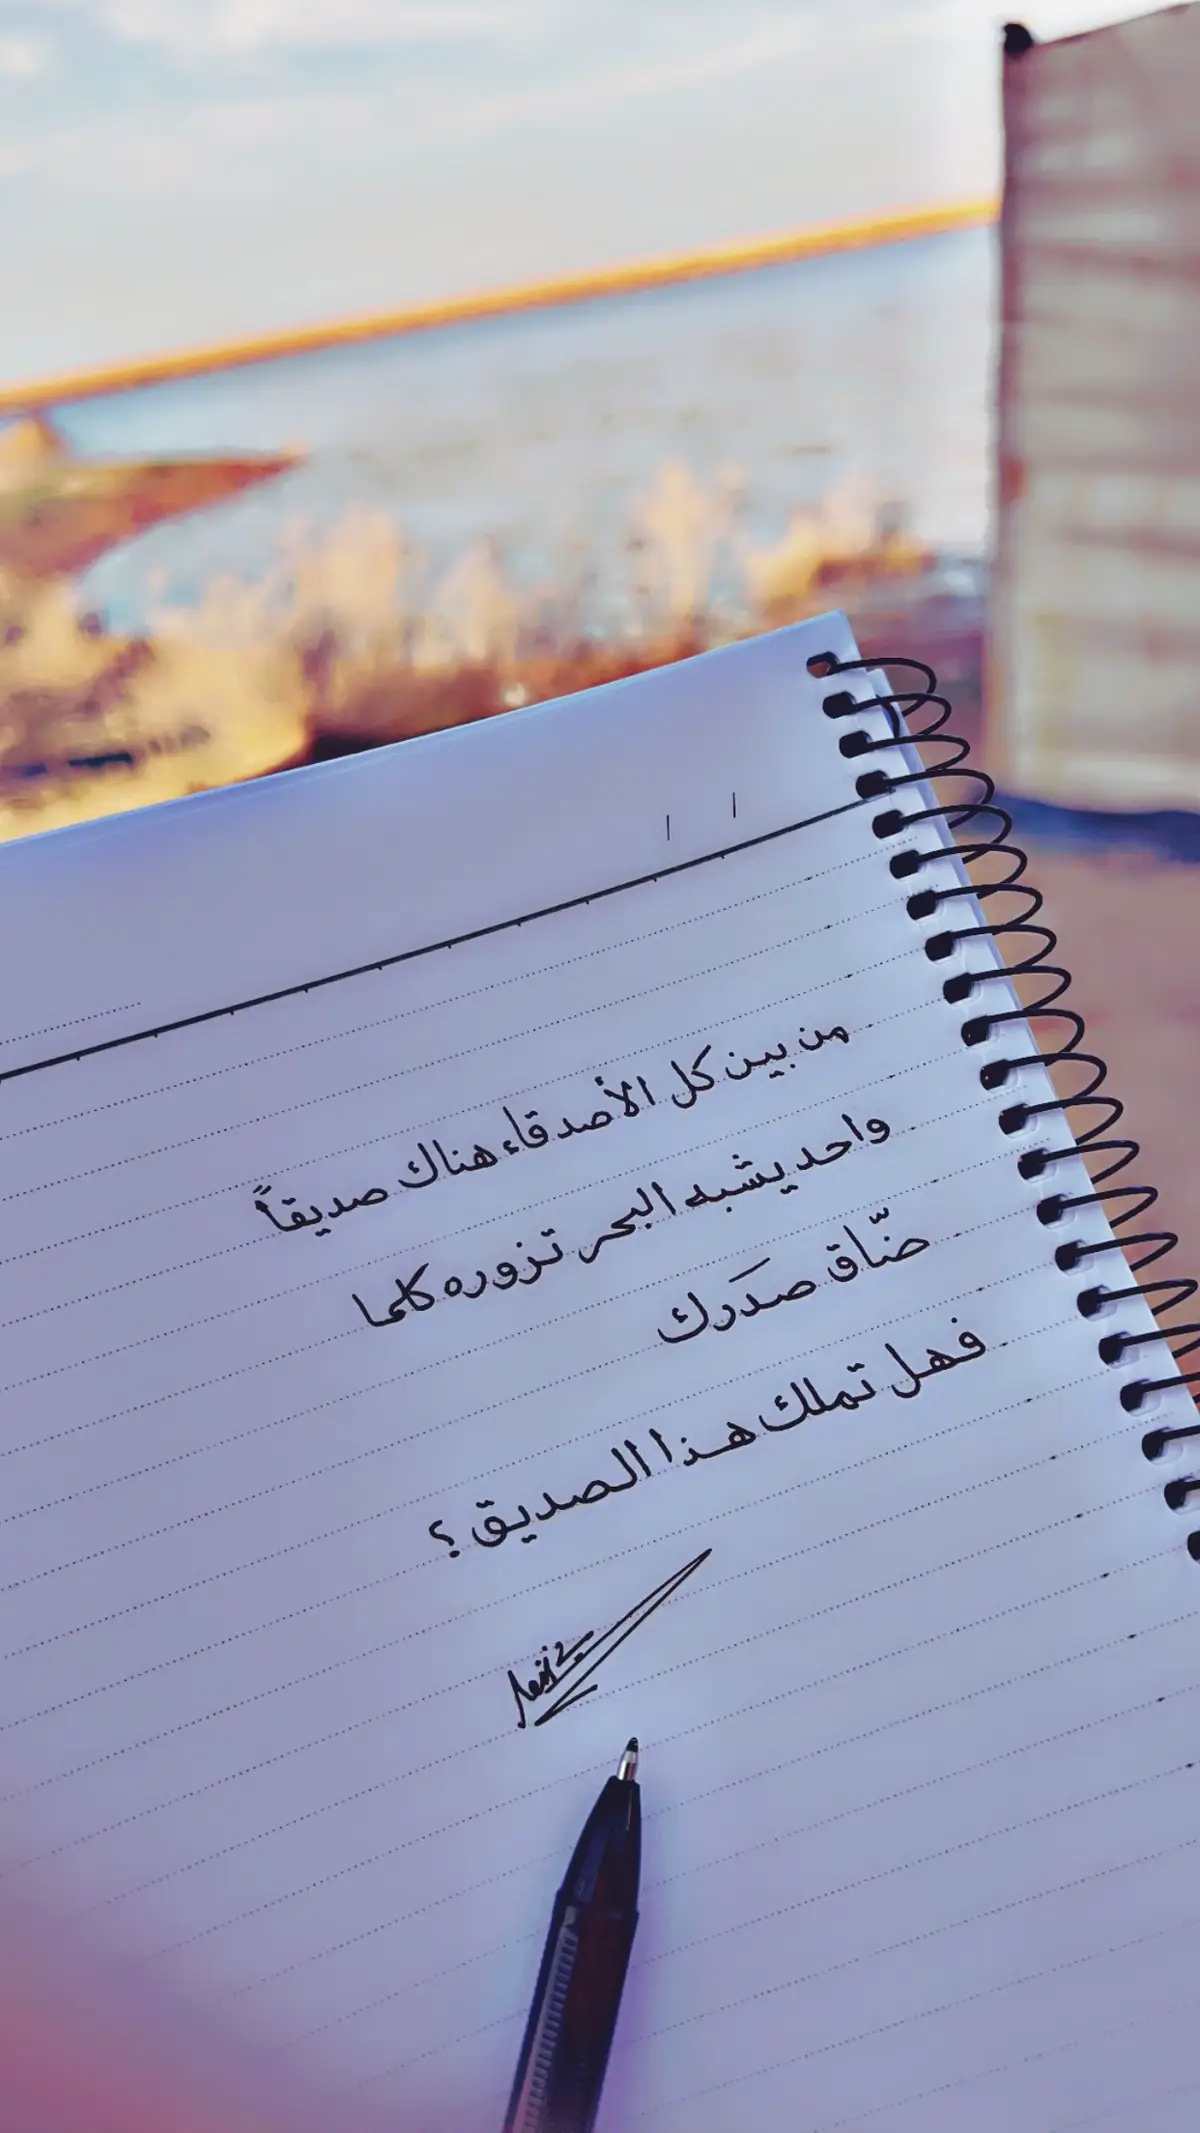 من بين كل الأصدقاء هناك صديقاً
واحد يشبه البحر تزوره كلما
ضّاق صَدرك
فهل تملك هذا الصديق ؟